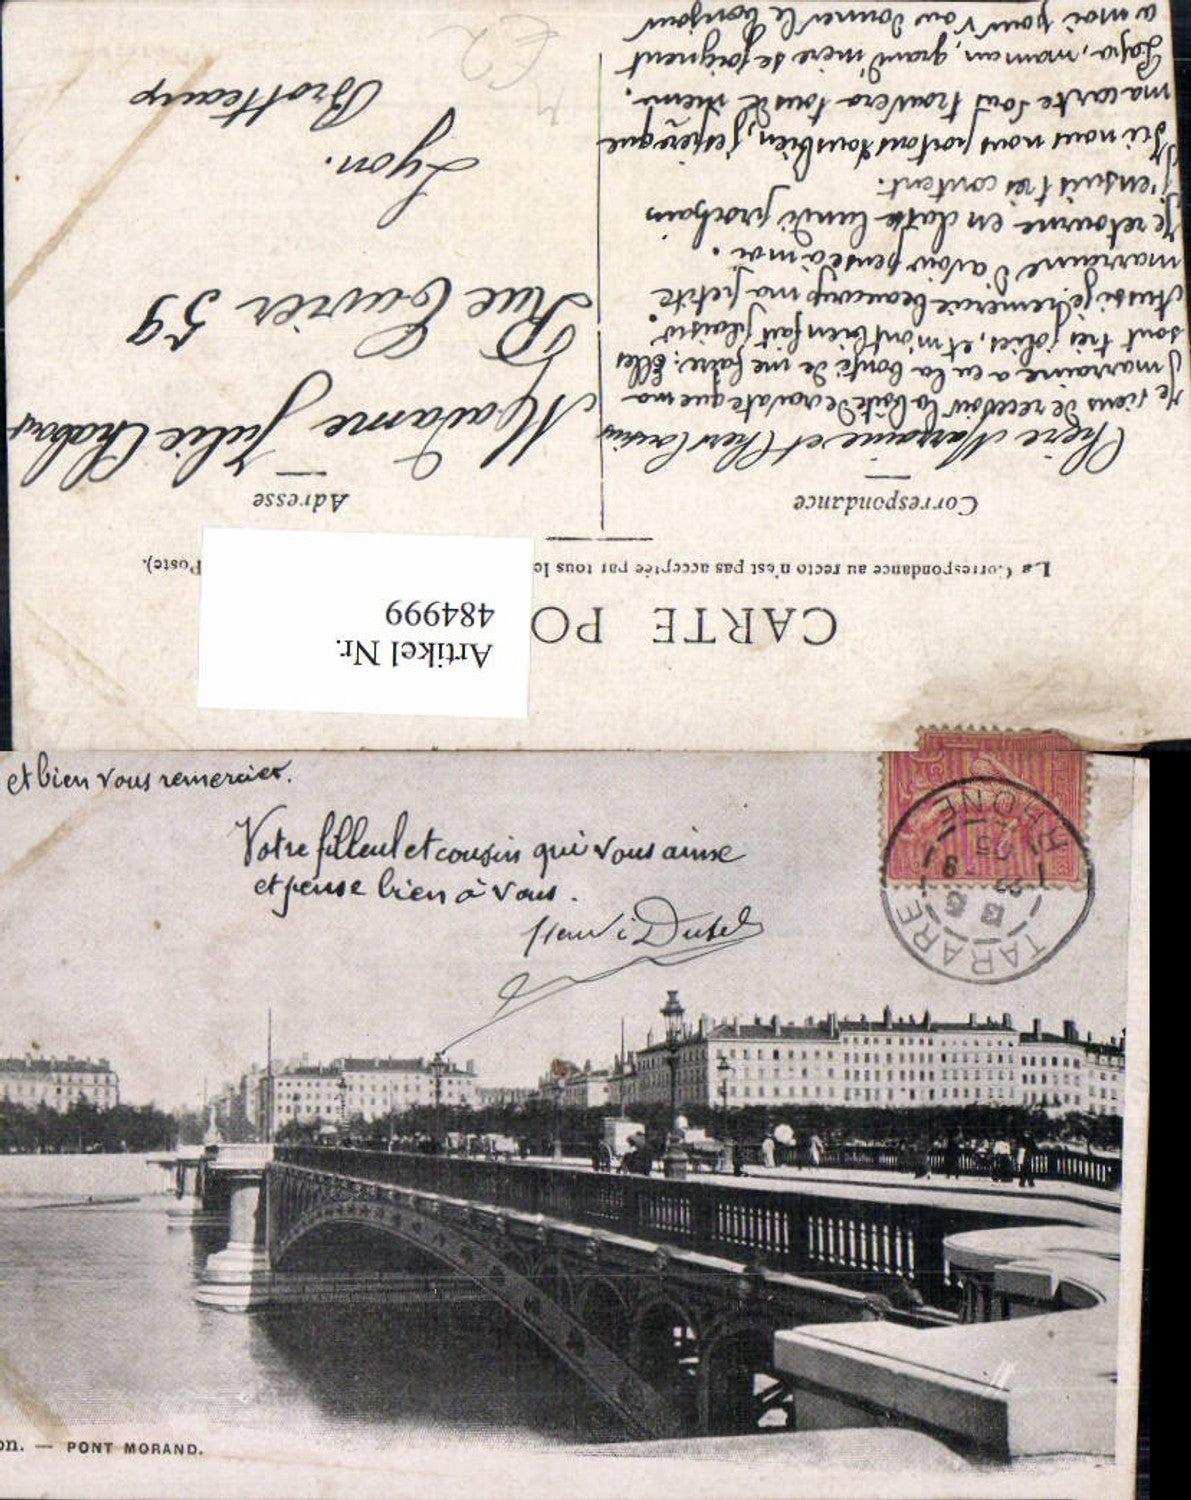 CARTE PO
La Correspondance au recto n'est pas acceptée par tous le
Poste).
Artikel Nr.
484999
Correspondance
Adresse
Chère Marraine et Chers Cousins
Je viens de recevoir la boîte de cravate que ma
marraine a eu la bonté de me faire: Elles
sont très jolies, et m'ont bien fait plaisir.
Aussi je remercie beaucoup ma petite
marraine d'avoir pensé à moi.
Je retourne en classe lundi prochain
J'en suis très content.
Ici nous portons tous bien, j'espère que
ma carte vous trouvera tous de même.
Papa, maman, grand'mère se joignent
à moi pour vous donner le bonjour
Madame Julie Chabout
Rue Cuvier 59
Lyon.
Brotteaux
et bien vous remercier.
Votre filleul et cousin qui vous aime
et pense bien à vous.
Henri Dubel
TARARE
RHONE
05
on. — PONT MORAND.